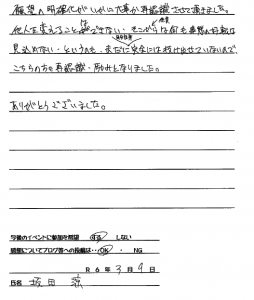 願望の明確化がいかに大事か再認識させて頂きました。
他人を変えることはできない、そこからは何も事態の好転は
見込めない、というのも、まだ完全には抜け出せていないので、
こちらの方も再認識・励みとなりました。
ありがとうございました。
今後のイベントに参加を希望 する しない
感想についてブログ等への投稿は… OK ・ NG
R 6 年 3 月 9 日
氏名